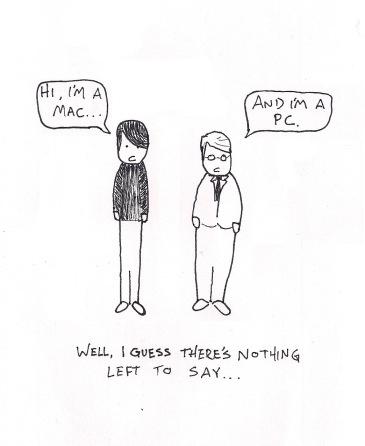 HI, I'M A
MAC...
AND I'M A
PC.
WELL, I GUESS THERE'S NOTHING
LEFT TO SAY...